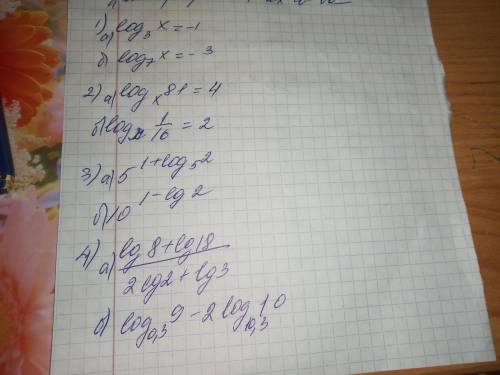 1) а) log₃ x = -1
б) log₇ x = -3
2) а) logₓ 81 = 4
б) logₓ 1/16 = 2
3) а) 5^(1+log₅2)
б) 10^(1-lg 2)
4) а) (lg 8 + lg 18)/(2 lg 2 + lg 3)
б) log₀,₃ 9 - 2 log₀,₃ 10